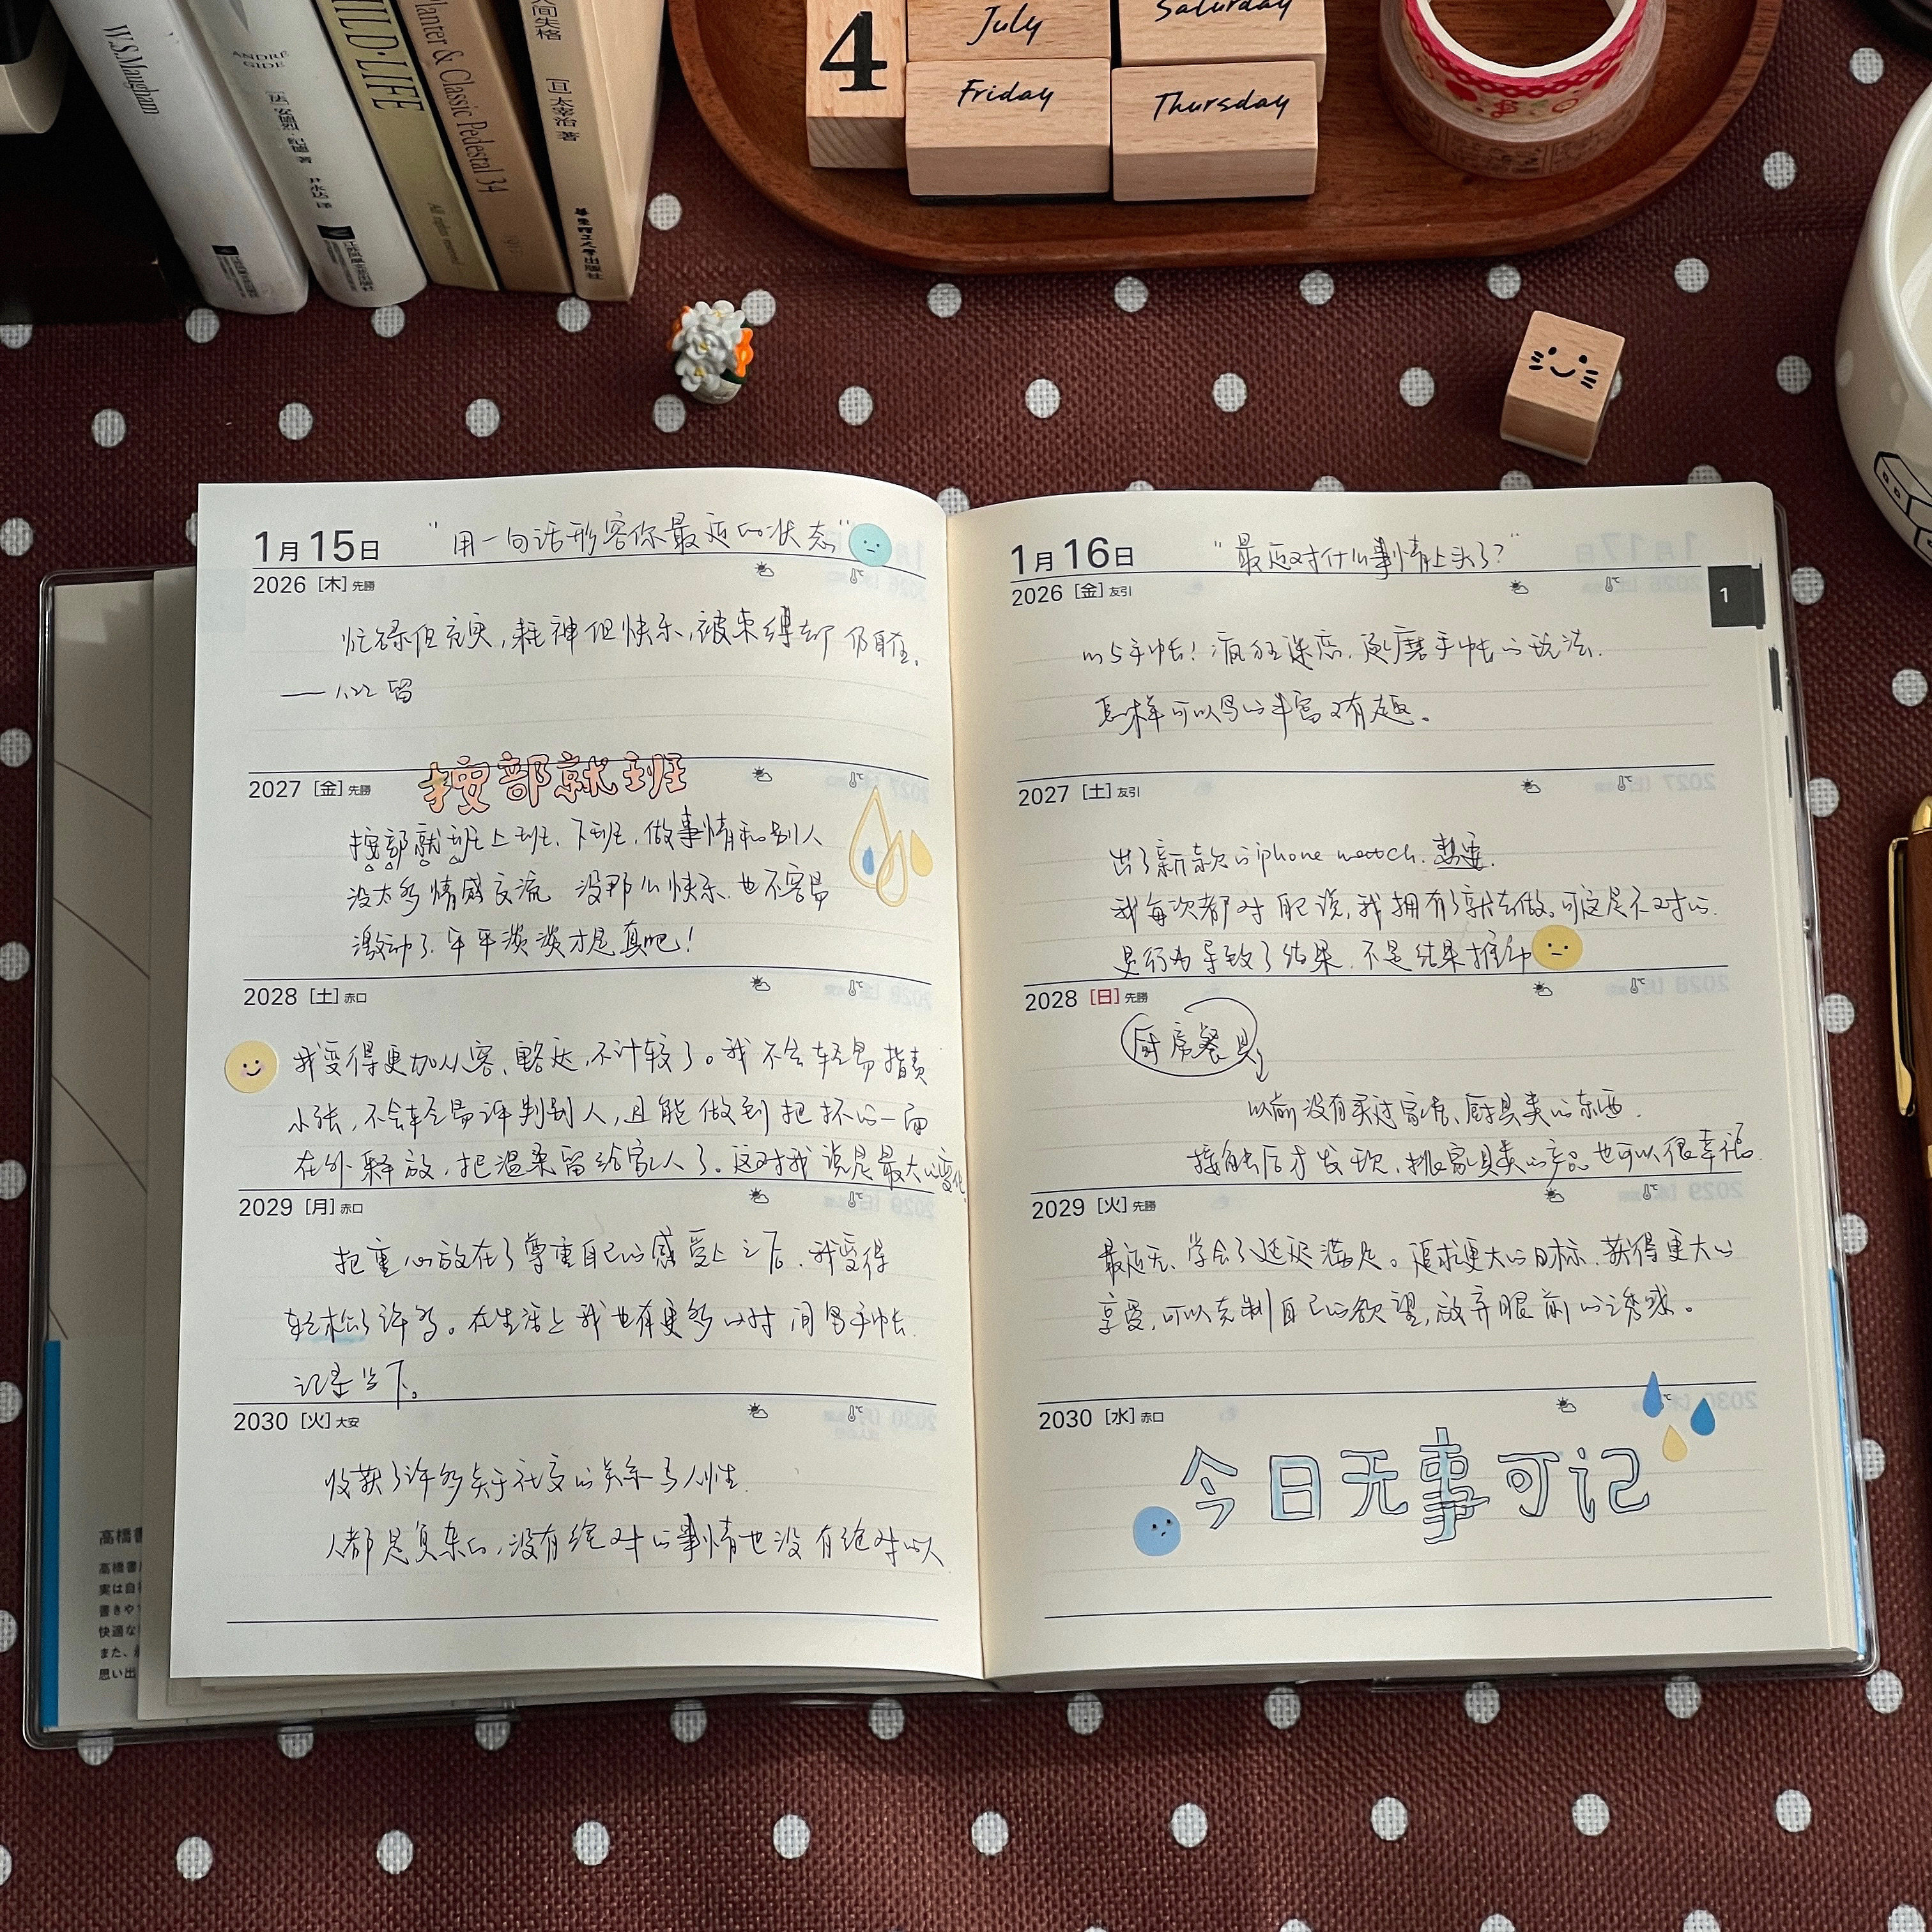 W.S.Maugham
ANDRÉ
GIDE
[法] 安德烈·纪德 著
WILD·LIFE
All rights reserved
Planter & Classic Pedestal 34
人间失格
[日] 太宰治 著
出版社
4
July
Saturday
Friday
Thursday
1月15日
"用一句话形容你最近的状态"
2026 [木] 先勝
忙碌但充实,耗神但快乐,被束缚却仍自在。
—— 1.22 留
2027 [金] 先勝
按部就班
按部就班上班、下班,做事情和别人
没太多情感交流 没那么快乐、也不容易
激动了.平平淡淡才是真吧!
2028 [土] 赤口
我变得更加从容、豁达,不计较了。我不会轻易指责
小张,不会轻易评判别人,且能做到把坏的一面
在外释放,把温柔留给家人了。这对我说是最大的变化
2029 [月] 赤口
把重心放在了尊重自己的感受上之后,我变得
轻松了许多。在生活上我也有更多的时间写手帐.
记录当下。
2030 [火] 大安
收获了许多关于社交的关系与人性.
人都是复杂的,没有绝对的事情也没有绝对的人
1月16日
"最近对什么事情上头了?"
2026 [金] 友引
1
m5手帐!疯狂迷恋.琢磨手帐的玩法.
怎样可以写的丰富又有趣。
2027 [土] 友引
出了新款的iphone watch.想要.
我每次都对自己说,我拥有了就去做。可这是不对的.
是行为导致了结果.不是结果推动
2028 [日] 先勝
厨房餐具
以前没有买过家居、厨具类的东西.
接触后才发现,挑家具类的产品也可以很幸福.
2029 [火] 先勝
最近无、学会了延迟满足。追求更大的目标.获得更大的
享受,可以克制自己的欲望,放弃眼前的诱惑。
2030 [水] 赤口
今日无事可记
高橋書
高橋書
実は自
書きや
快適な
また、
思い出